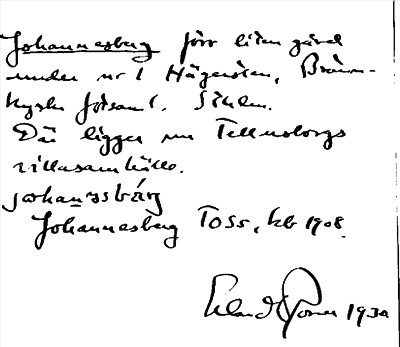 Johannesberg förr liten gård
under nr 1 Hägersten, Bränn-
kyrka församl. Sthlm.
Där ligger nu Tellusborgs
villasamhälle.
Johannesberg Toss, kb 1908.
1930